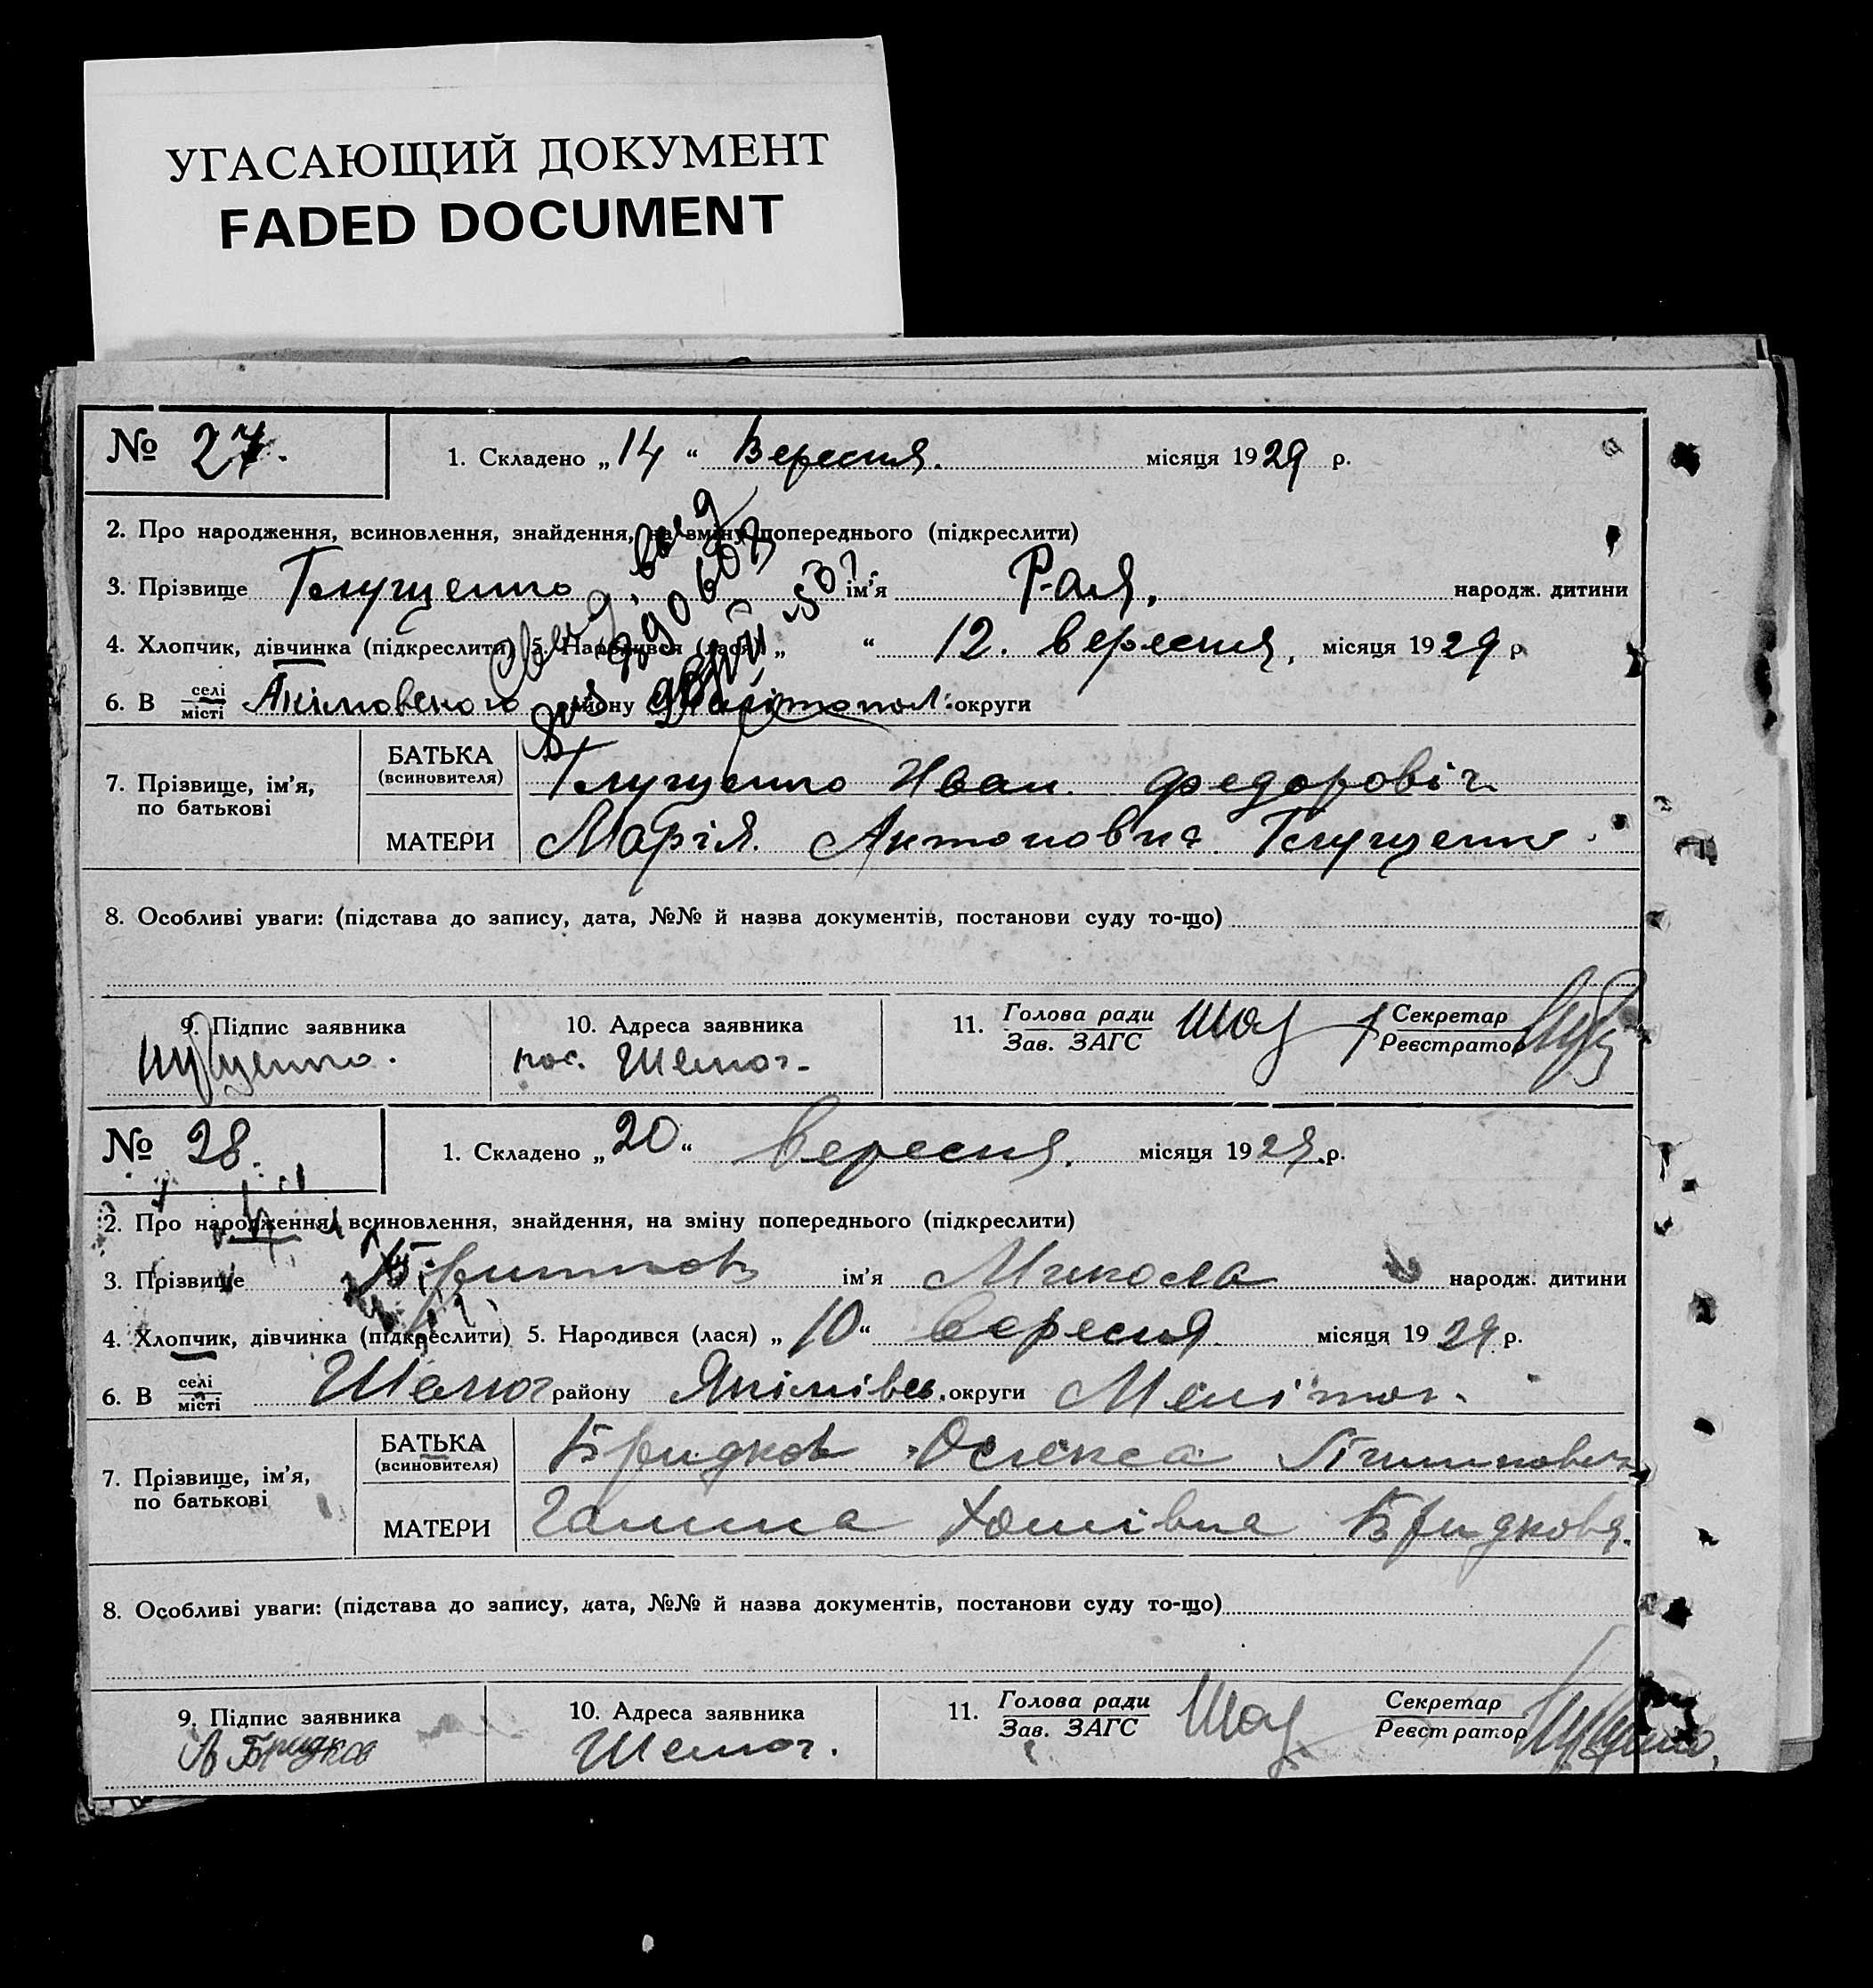 УГАСАЮЩИЙ ДОКУМЕНТ
FADED DOCUMENT
№ 27.
1. Складено „ 14 “ Вересня. місяця 1929 р.
2. Про народження, всиновлення, знайдення, на зміну попереднього (підкреслити)
3. Прізвище Глущенко ім'я Рая, народж. дитини
4. Хлопчик, дівчинка (підкреслити) 5. Народився (лася) „ “ 12. вересня, місяця 1929 р
6. В селі/місті Акімовского району Мелітопол. округи
7. Прізвище, ім'я, по батькові
БАТЬКА (всиновителя) Глущенко Иван Федоровіч
МАТЕРИ Марія Антоновна Глущенко.
8. Особливі уваги: (підстава до запису, дата, №№ й назва документів, постанови суду то-що)
9. Підпис заявника
10. Адреса заявника
пос.
11. Голова ради/Зав. ЗАГС
Секретар/Реєстратор
№ 28.
1. Складено „ 20 “ Вересня. місяця 1929 р.
2. Про народження, всиновлення, знайдення, на зміну попереднього (підкреслити)
3. Прізвище ім'я Микола народж. дитини
4. Хлопчик, дівчинка (підкреслити) 5. Народився (лася) „ 10 “ Вересня. місяця 1929 р.
6. В селі/місті району Якімівсь. округи Меліто.
7. Прізвище, ім'я, по батькові
БАТЬКА (всиновителя) Бридков Олекса
МАТЕРИ Галина Хомівна Бридкова.
8. Особливі уваги: (підстава до запису, дата, №№ й назва документів, постанови суду то-що)
9. Підпис заявника
А Бридков
10. Адреса заявника
11. Голова ради/Зав. ЗАГС
Секретар/Реєстратор